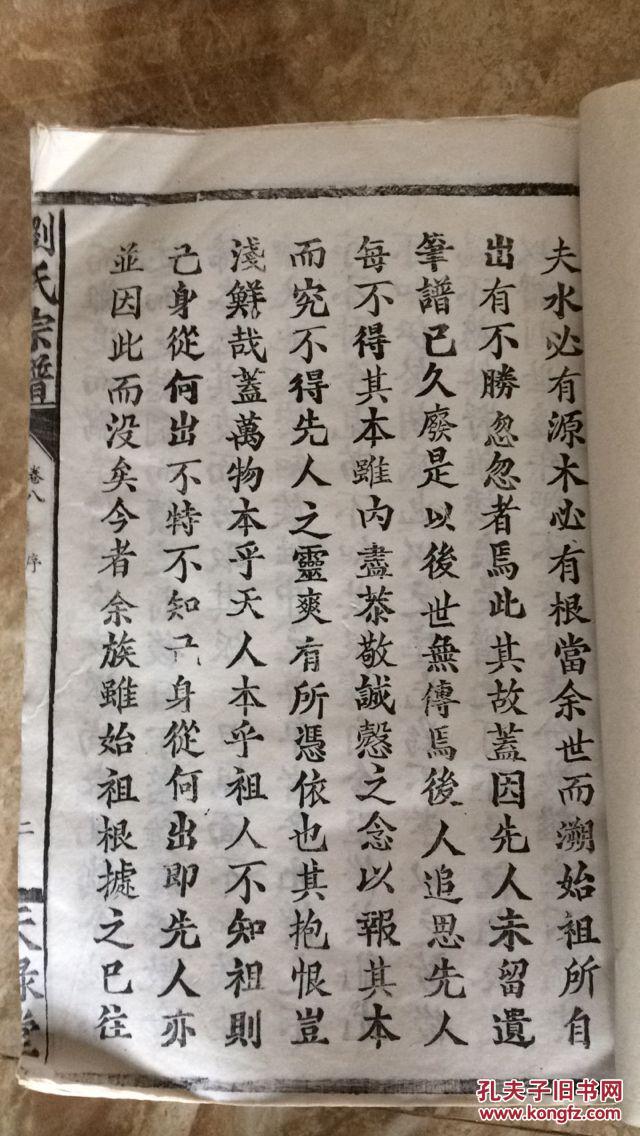 夫水必有源木必有根當余世而溯始祖所自
出有不勝忽忽者焉此其故蓋因先人未留遺
筆譜已久廢是以後世無傳焉後人追思先人
每不得其本雖内盡恭敬誠慤之念以報其本
而究不得先人之靈爽有所憑依也其抱恨豈
淺鮮哉蓋萬物本乎天人本乎祖人不知祖則
己身從何出不特不知己身從何出即先人亦
並因此而没矣今者余族雖始祖根據之已往
劉氏宗譜
卷八
序
二
天祿堂
孔夫子旧书网
www.kongfz.com